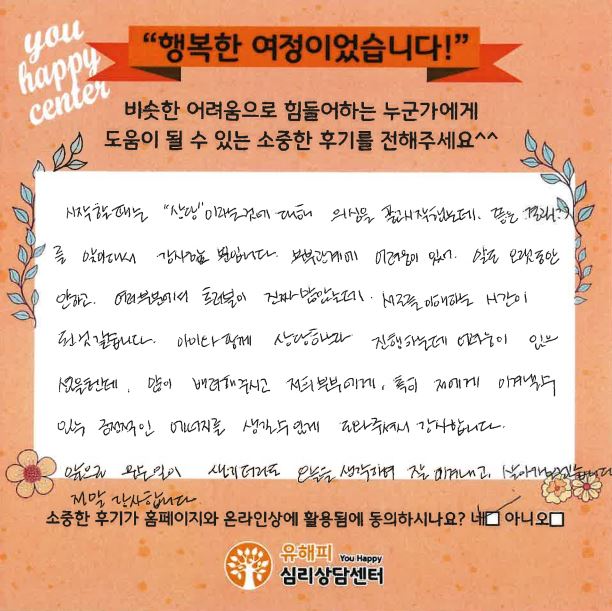 you
happy
center
“행복한 여정이었습니다!”
비슷한 어려움으로 힘들어하는 누군가에게
도움이 될 수 있는 소중한 후기를 전해주세요^^
시작할때는 "상담"이라는것에 대해 의심을 품고시작했는데. 뜻밖
를 얻어가서 감사할 뿐입니다. 부부관계에 어려움이 있어. 말을 오랫동안
안하고. 여러부분에서 트러블이 진짜 많았는데. 서로를이해하는 시간이
된것같습니다. 아이와 함께 상담하느라 진행하는데 어려움이 있으
셨을텐데, 많이 배려해주시고 저희부부에게, 특히 저에게 이겨낼수
있는 긍정적인 에너지를 생각할수있게 도와주셔서 감사합니다.
앞으로 힘든일이 생기더라도 오늘을 생각하며 잘 이겨내고, 살아가
정말 감사합니다
소중한 후기가 홈페이지와 온라인상에 활용됨에 동의하시나요? 네 아니오
유해피 You Happy
심리상담센터